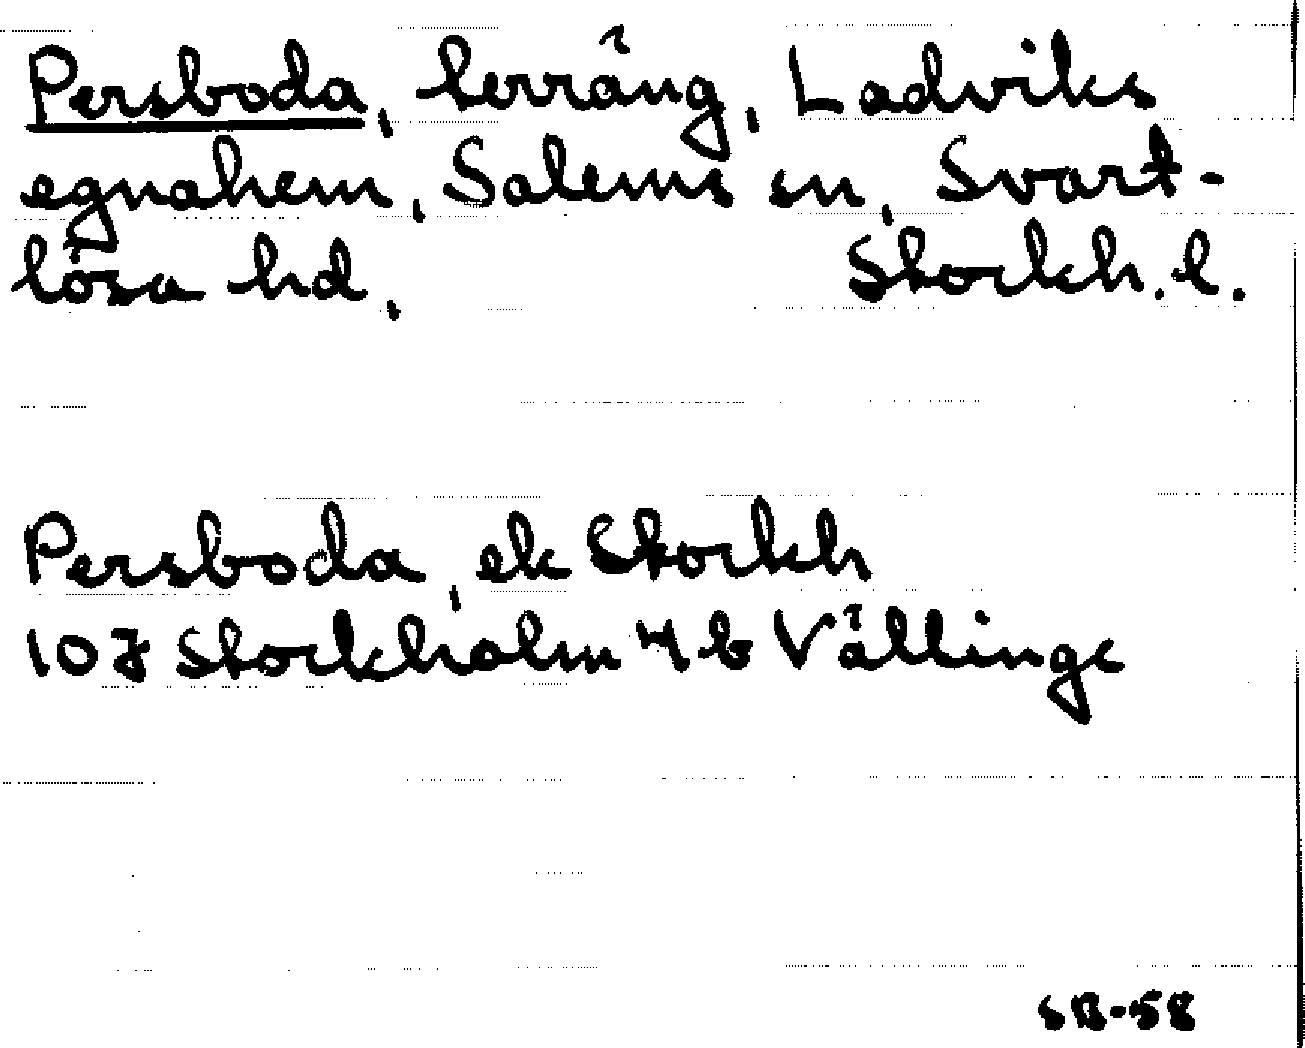 Persboda, terräng, Ladviks
egnahem, Salems sn, Svart-
lösa hd. Stockh. l.
Persboda, ek Stockh
10J Stockholm 4b Vällinge
SB-58